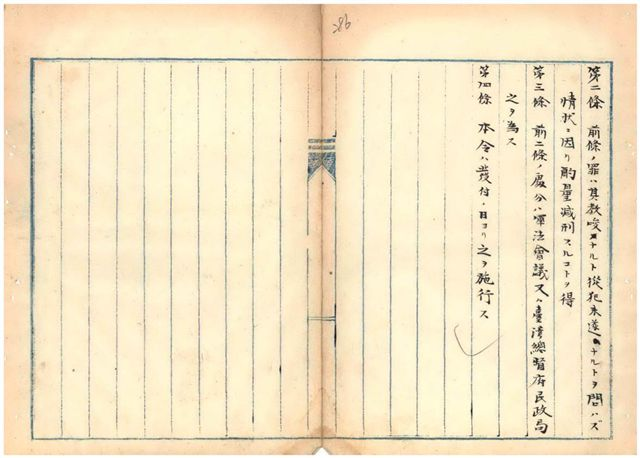 第二條 前條ノ罪ハ其教唆ナルト從犯未遂ナルトヲ問ハズ
情状ニ因リ酌量減刑スルコトヲ得
第三條 前二條ノ處分ハ軍法會議又ハ臺湾總督府民政局
之ヲ為ス
第四條 本令ハ發付ノ日ヨリ之ヲ施行ス
286